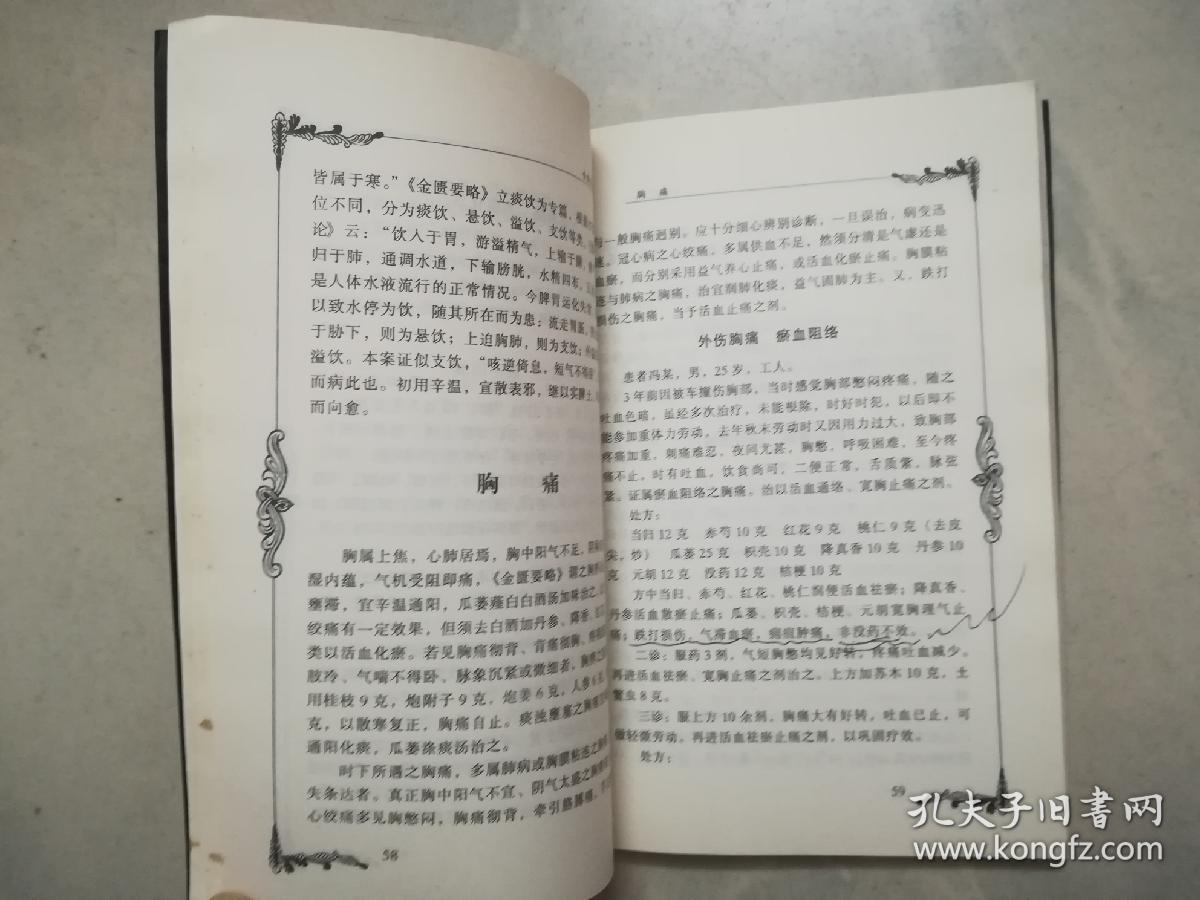 皆属于寒。”《金匮要略》立痰饮为专篇，
位不同，分为痰饮、悬饮、溢饮、支饮等类。
论》云：“饮入于胃，游溢精气，上输于脾，
归于肺，通调水道，下输膀胱，水精四布，
是人体水液流行的正常情况。今脾胃运化失
以致水停为饮，随其所在而为患：流走胃肠，
于胁下，则为悬饮；上迫胸肺，则为支饮；
溢饮。本案证似支饮，“咳逆倚息，短气不得卧
而病此也。初用辛温，宣散表邪，继以实脾土，
而向愈。
胸 痛
胸属上焦，心肺居焉，胸中阳气不足，
湿内蕴，气机受阻即痛，《金匮要略》谓之胸
壅滞，宜辛温通阳，瓜蒌薤白白酒汤加味治之。
绞痛有一定效果，但须去白酒加丹参、降香、
类以活血化瘀。若见胸痛彻背、背痛彻胸、
肢冷、气喘不得卧、脉象沉紧或微细者，
用桂枝9克，炮附子9克，炮姜6克，人参6克，
克，以散寒复正，胸痛自止。痰浊壅塞之胸痹
通阳化痰，瓜蒌涤痰汤治之。
时下所遇之胸痛，多属肺病或胸膜粘连之胸
失条达者。真正胸中阳气不宣、阴气太盛之胸
心绞痛多见胸憋闷，胸痛彻背，牵引筋膊痛，
58
胸 痛
与一般胸痛迥别。应十分细心辨别诊断，一旦误治，病变迅
速。冠心病之心绞痛，多属供血不足，然须分清是气虚还是
血瘀，而分别采用益气养心止痛，或活血化瘀止痛。胸膜粘
连与肺病之胸痛，治宜润肺化痰，益气固肺为主。又，跌打
损伤之胸痛，当予活血止痛之剂。
外伤胸痛 瘀血阻络
患者冯某，男，25岁，工人。
3年前因被车撞伤胸部，当时感觉胸部憋闷疼痛，随之
吐血色暗，虽经多次治疗，未能根除，时好时犯，以后即不
能参加重体力劳动，去年秋末劳动时又因用力过大，致胸部
疼痛加重，刺痛难忍，夜间尤甚，胸憋，呼吸困难，至今疼
痛不止，时有吐血，饮食尚可，二便正常，舌质紫，脉弦
紧。证属瘀血阻络之胸痛。治以活血通络、宽胸止痛之剂。
处方：
当归12克 赤芍10克 红花9克 桃仁9克（去皮
尖，炒） 瓜蒌25克 枳壳10克 降真香10克 丹参10
克 元胡12克 没药12克 桔梗10克
方中当归、赤芍、红花、桃仁润便活血祛瘀；降真香、
丹参活血散瘀止痛；瓜蒌、枳壳、桔梗、元胡宽胸理气止
痛；跌打损伤，气滞血瘀，癥瘕肿痛，非没药不效。
二诊：服药3剂，气短胸憋均见好转，疼痛吐血减少。
再进活血祛瘀、宽胸止痛之剂治之。上方加苏木10克，土
鳖虫8克。
三诊：服上方10余剂，胸痛大有好转，吐血已止，可
做轻微劳动。再进活血祛瘀止痛之剂，以巩固疗效。
处方：
59
孔夫子旧书网
www.kongfz.com